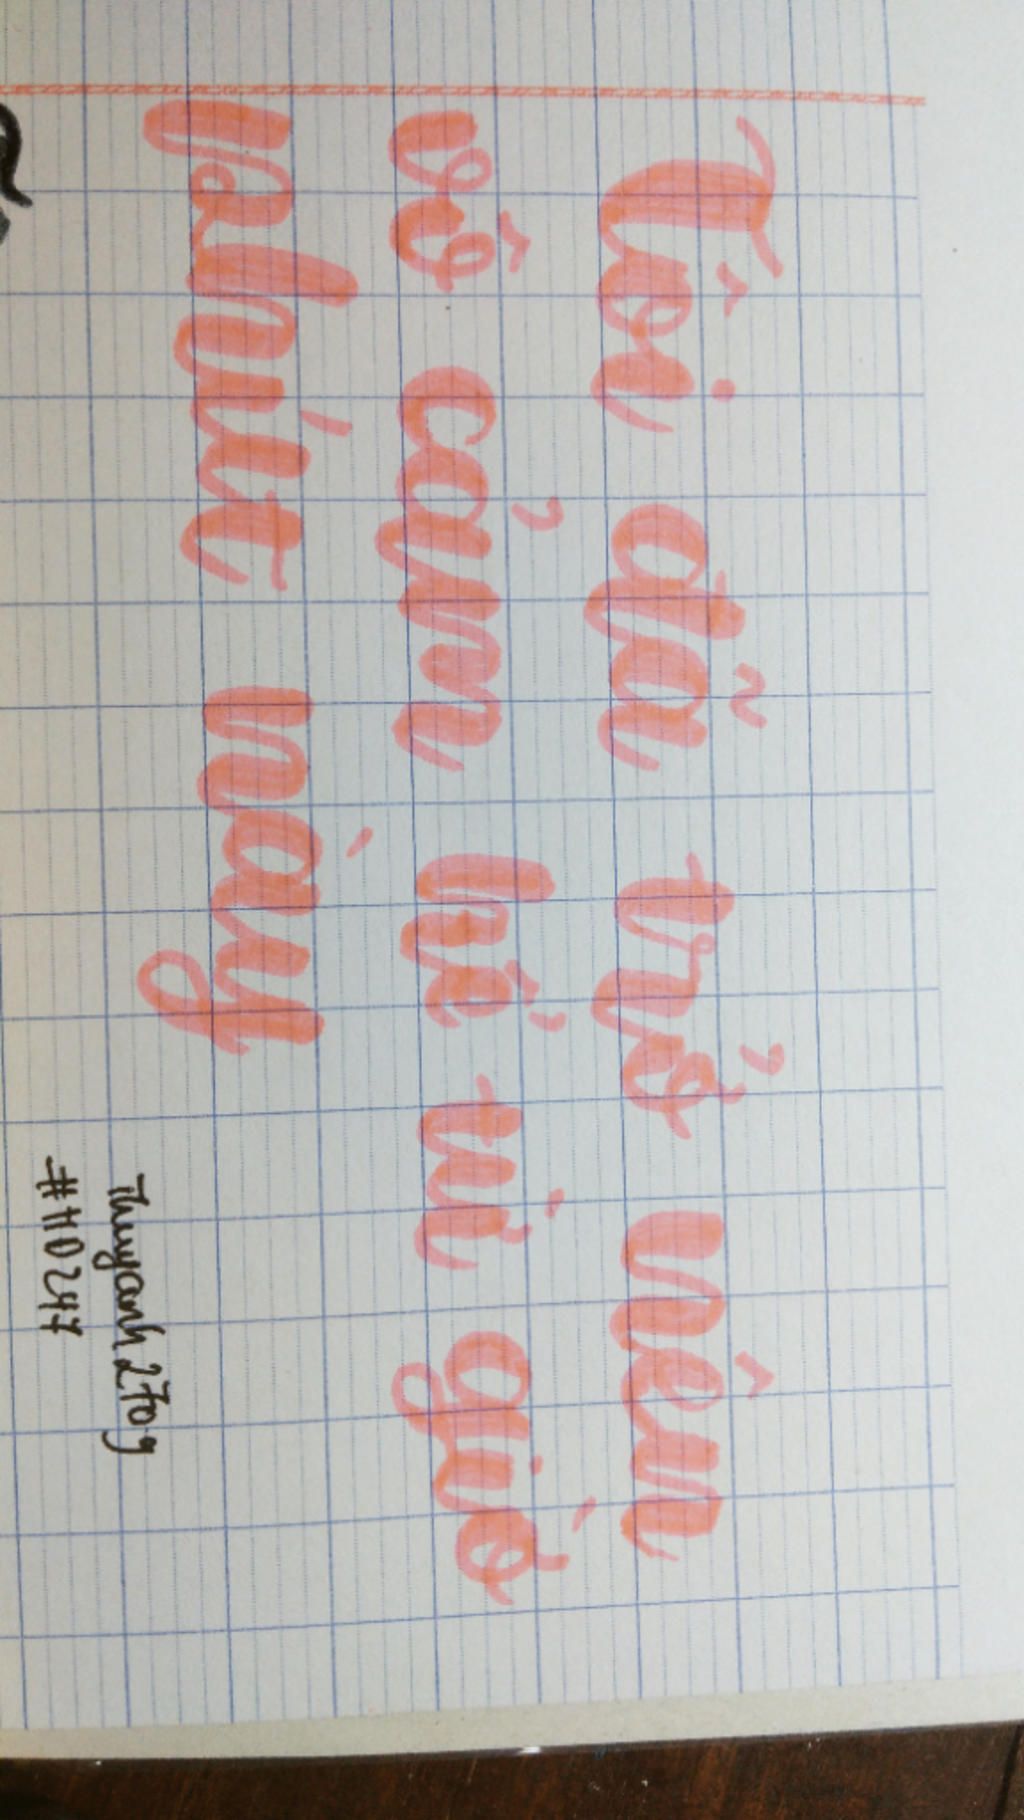 Tôi đã trở nên
vô cảm hể từ giờ
phít này
Thuyanh2709
#110247